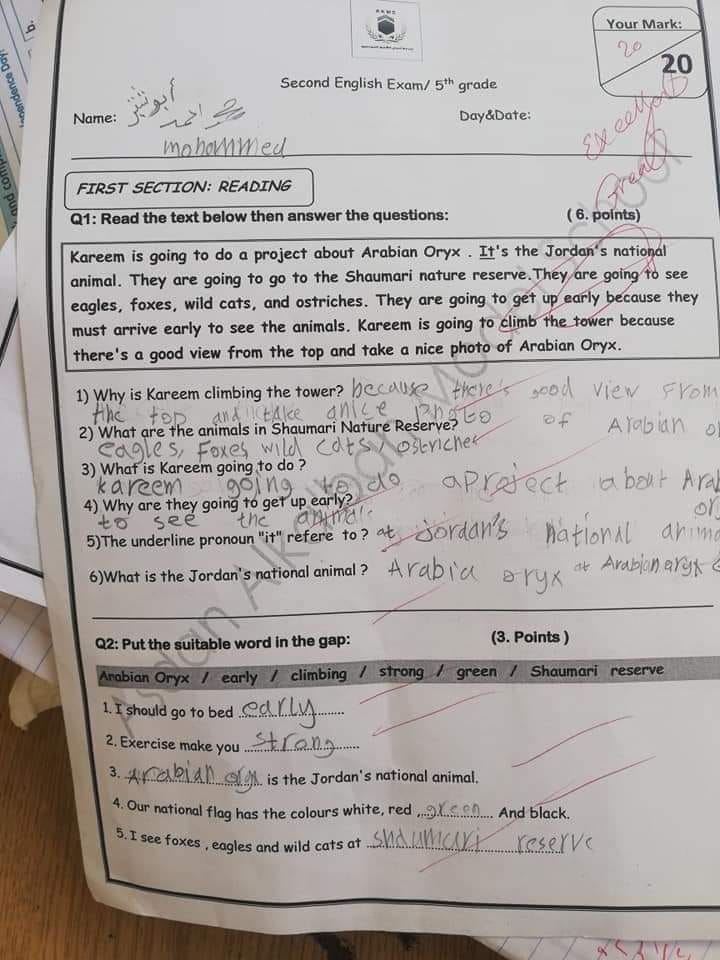 Your Mark:
20
20
Second English Exam/ 5th grade
Name:
Day&Date:
mohammed
Excellent
Great
FIRST SECTION: READING
Q1: Read the text below then answer the questions: ( 6. points)
Kareem is going to do a project about Arabian Oryx . It's the Jordan's national
animal. They are going to go to the Shaumari nature reserve.They are going to see
eagles, foxes, wild cats, and ostriches. They are going to get up early because they
must arrive early to see the animals. Kareem is going to climb the tower because
there's a good view from the top and take a nice photo of Arabian Oryx.
1) Why is Kareem climbing the tower? because there's good view From
the top and take anice photo of Arabian or
2) What are the animals in Shaumari Nature Reserve?
eagles, Foxes wild cats, ostriches
3) What is Kareem going to do ?
kareem going to do aproject about Arab
4) Why are they going to get up early?
to see the animals
5)The underline pronoun "it" refere to ? at Jordan's national anima
6)What is the Jordan's national animal ? Arabia oryx
Q2: Put the suitable word in the gap: (3. Points )
Arabian Oryx / early / climbing / strong / green / Shaumari reserve
1. I should go to bed early
2. Exercise make you strong
3. Arabian orgx is the Jordan's national animal.
4. Our national flag has the colours white, red , green And black.
5. I see foxes , eagles and wild cats at shaumari reserve